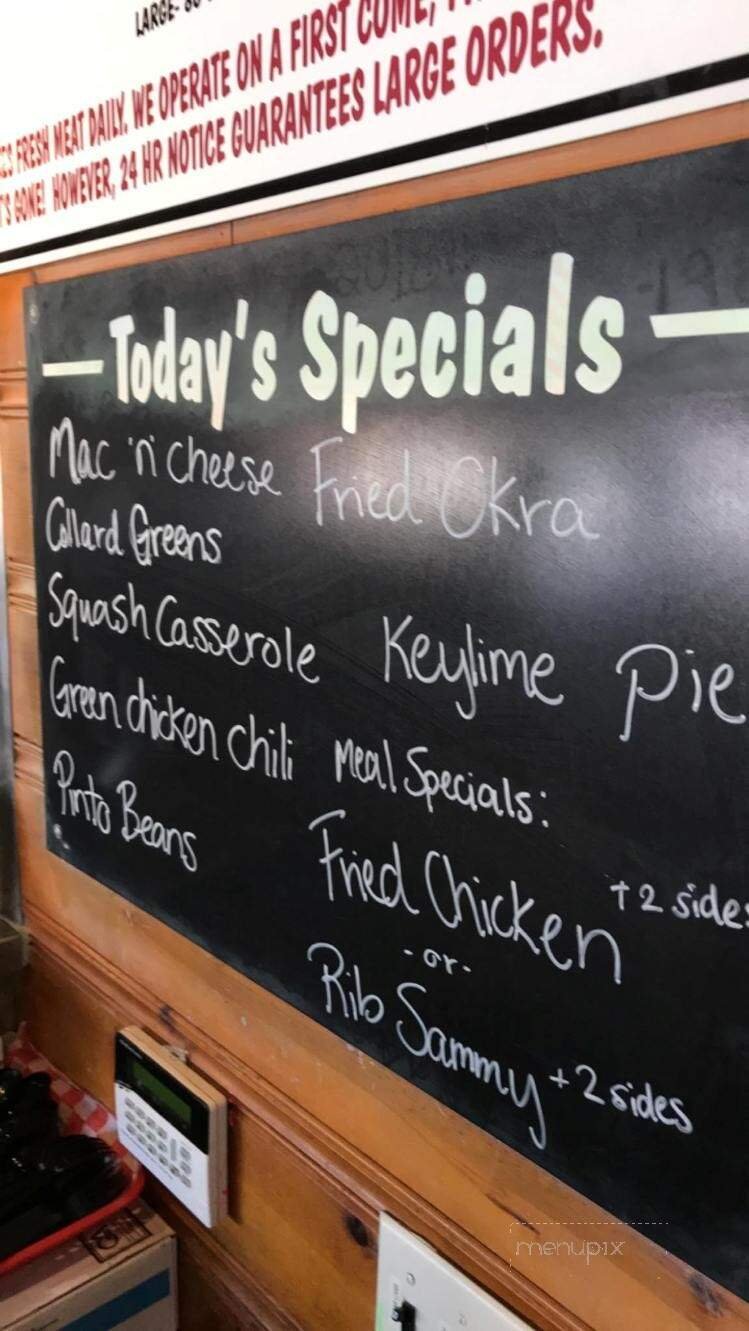 LARGE-
FRESH MEAT DAILY. WE OPERATE ON A FIRST COME,
GONE! HOWEVER, 24 HR NOTICE GUARANTEES LARGE ORDERS.
Today's Specials
Mac 'n' cheese Fried Okra
Collard Greens
Squash Casserole Keylime Pie
Green chicken chili Meal Specials:
Pinto Beans
Fried Chicken +2 sides
-or-
Rib Sammy +2 sides
menupix